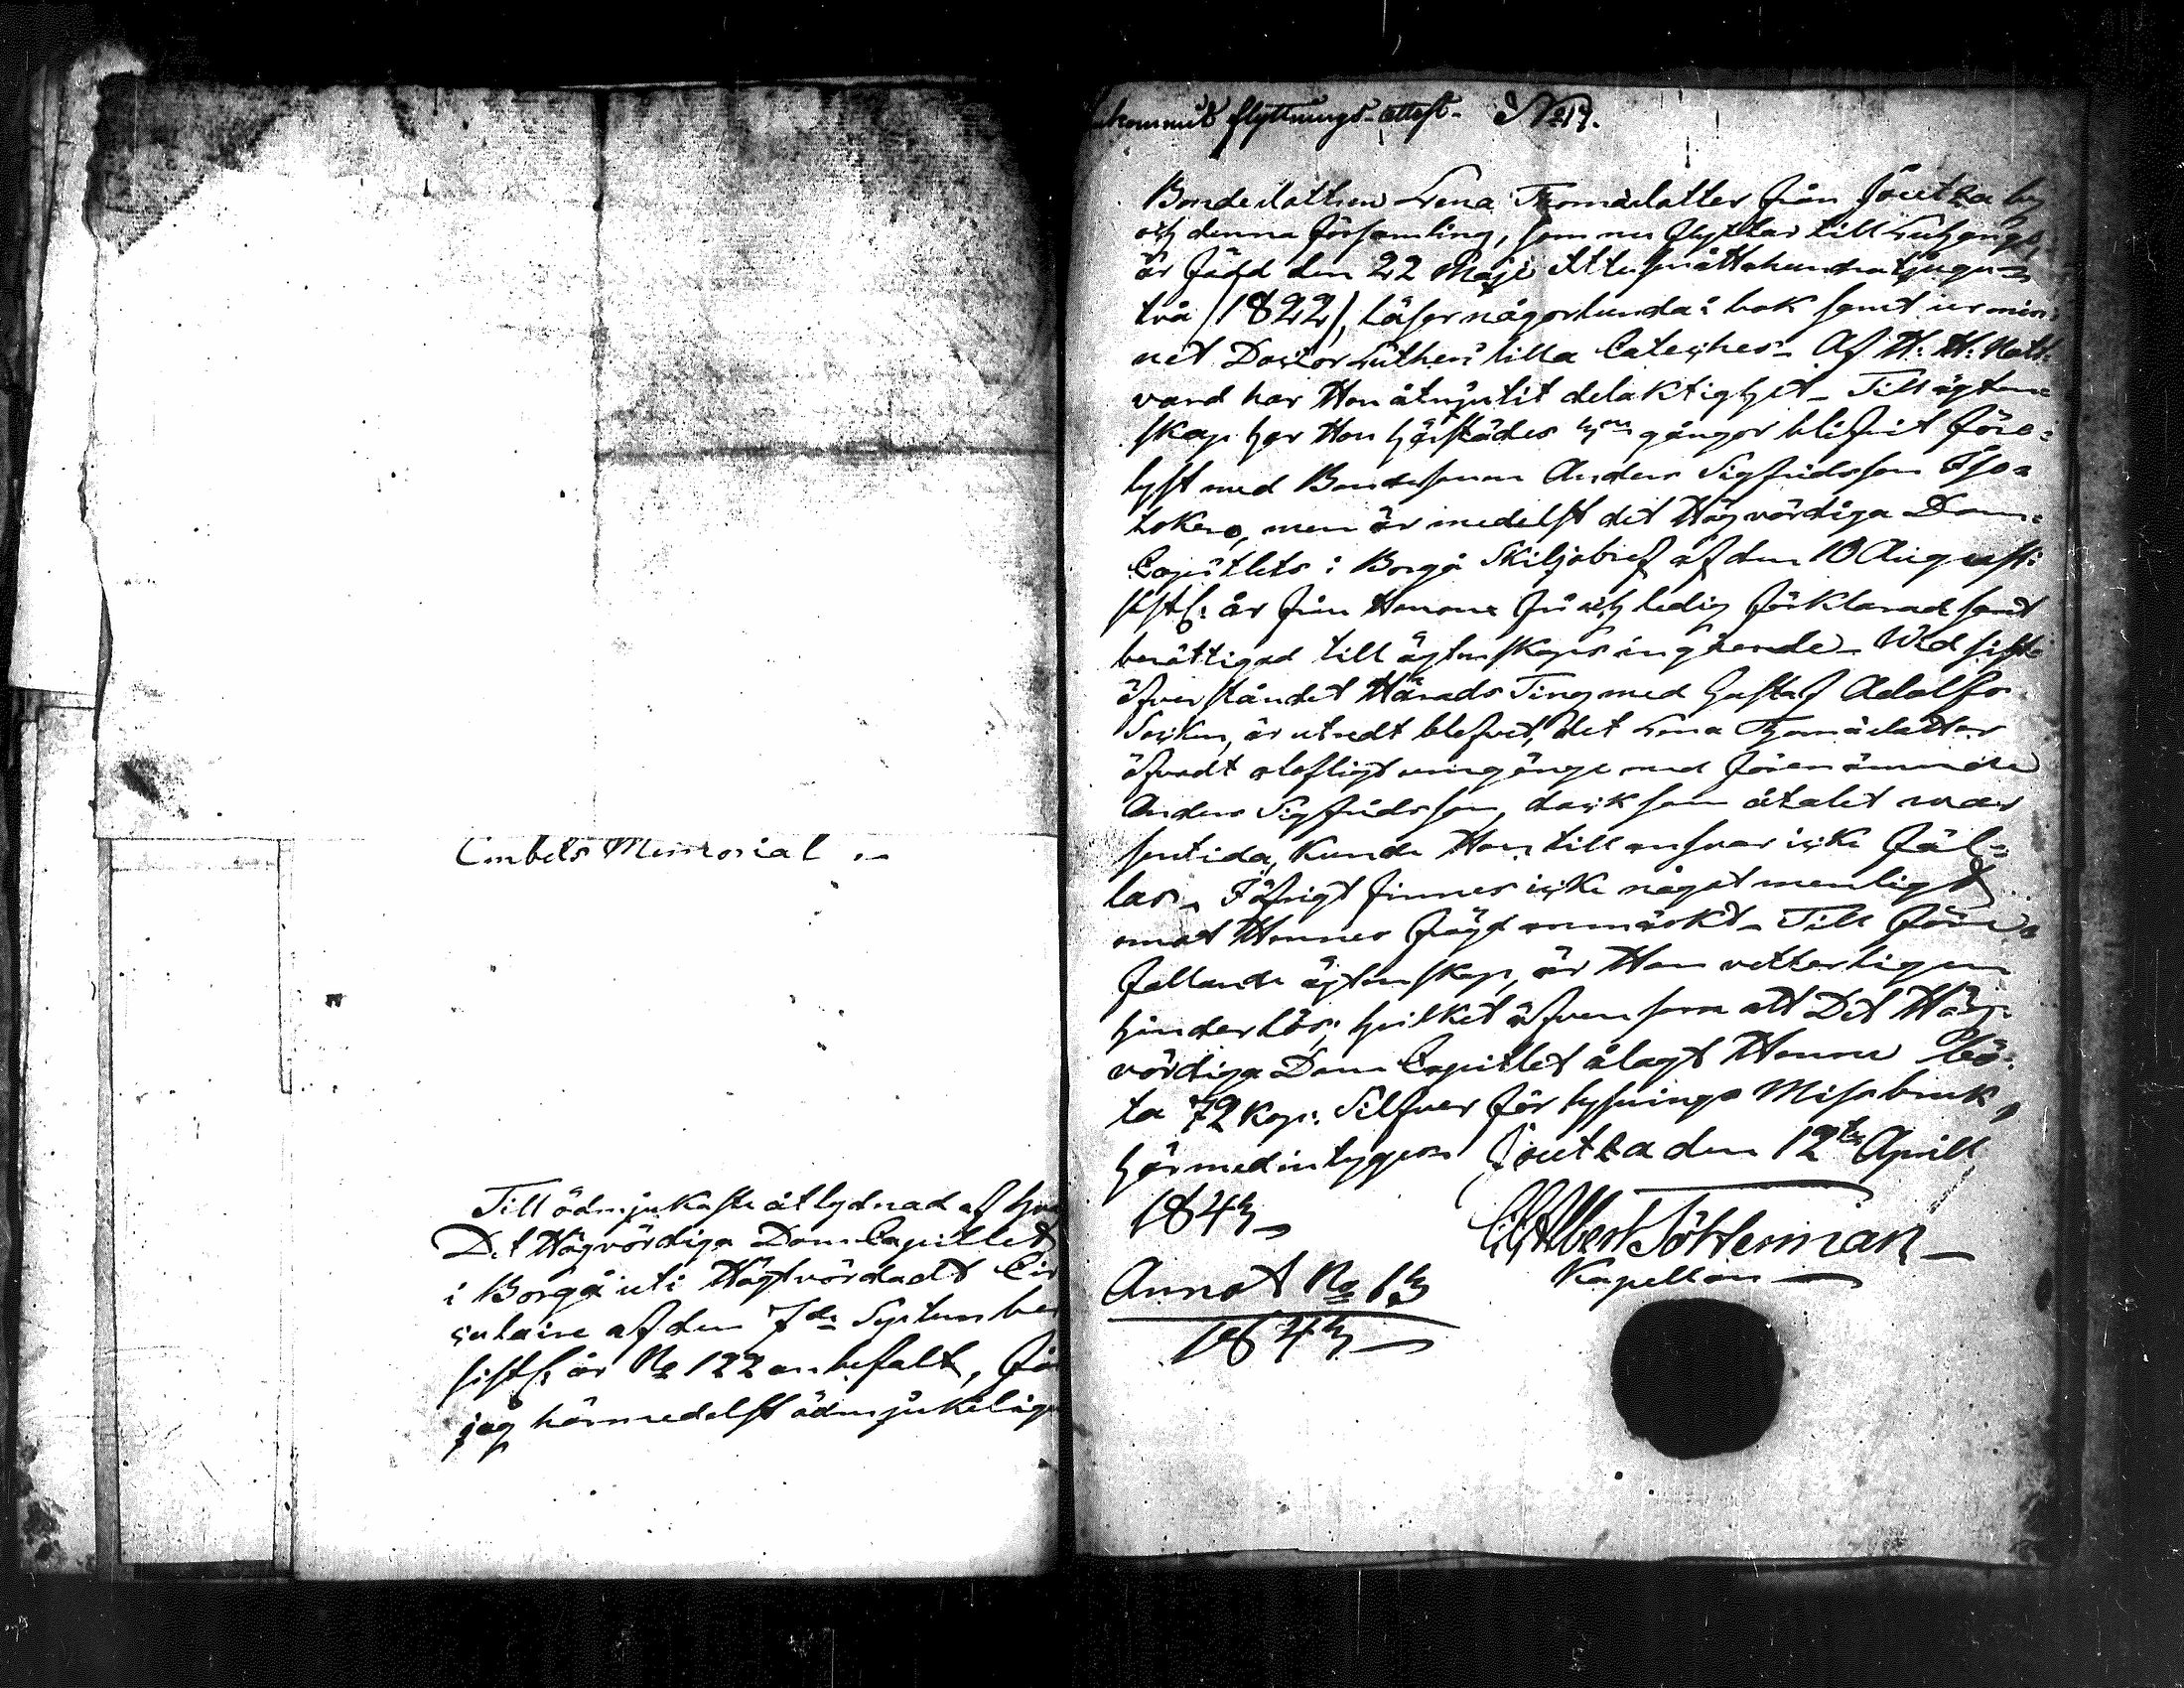 Embets Memorial.
Till ödmjukaste åtlydnad af hvad
Det Högvördiga Dom Capitlet
i Borgå uti Högtvördadt Cir
culaire af den 7de September
sistl. år No 122 anbefalt, får
jag härmedelst ödmjukeligen
inkommit flyttnings-attest. No 17.
Bondedottren Lena Thomædotter från Joutza by
och denna församling, som nu flyttar till Luhango,
är född den 22 Maji Ettusenåttahundratjugu
två (1822), läser någorlunda i bok samt ur min-
net Doctor Lutheri lilla Cateches. Af H. H. Natt-
vard har Hon åtnjutit delaktighet. Till ägten-
skap har Hon härstädes gångor blifvit före-
lyst med Bondesonen Anders Sigfridsson Iso
men är medelst det Högvördiga Dom-
Capitlets i Borgå Skiljobref af den 10 August:
sistl. år från Honom fri och ledig förklarad samt
berättigad till ägtenskaps ingående. Wid sist-
öfverståndet Härads Ting med Gustaf Adolfs
Socken, är utredt blefvet, det Lena Thomædotter
öfvadt olofligt umgänge med förenämnde
Anders Sigfridsson, dock som åtalet var
sentida, kunde Hon till ansvar icke fäl-
las. I öfrigt finnes icke något menligt
emot Hennes frägd anmärkt. Till före-
fallande ägtenskap, är Hon vetterligen
hinderlös; hvilket äfvensom att Det Hög-
vördiga Dom Capitlet ålagt Henne bö-
ta 72 kop. Silfver för lysnings Missbruk,
härmed intygas. Joutza den 12te April
1843
Albert Söhterman
Kapellan
Annot No 13
1843